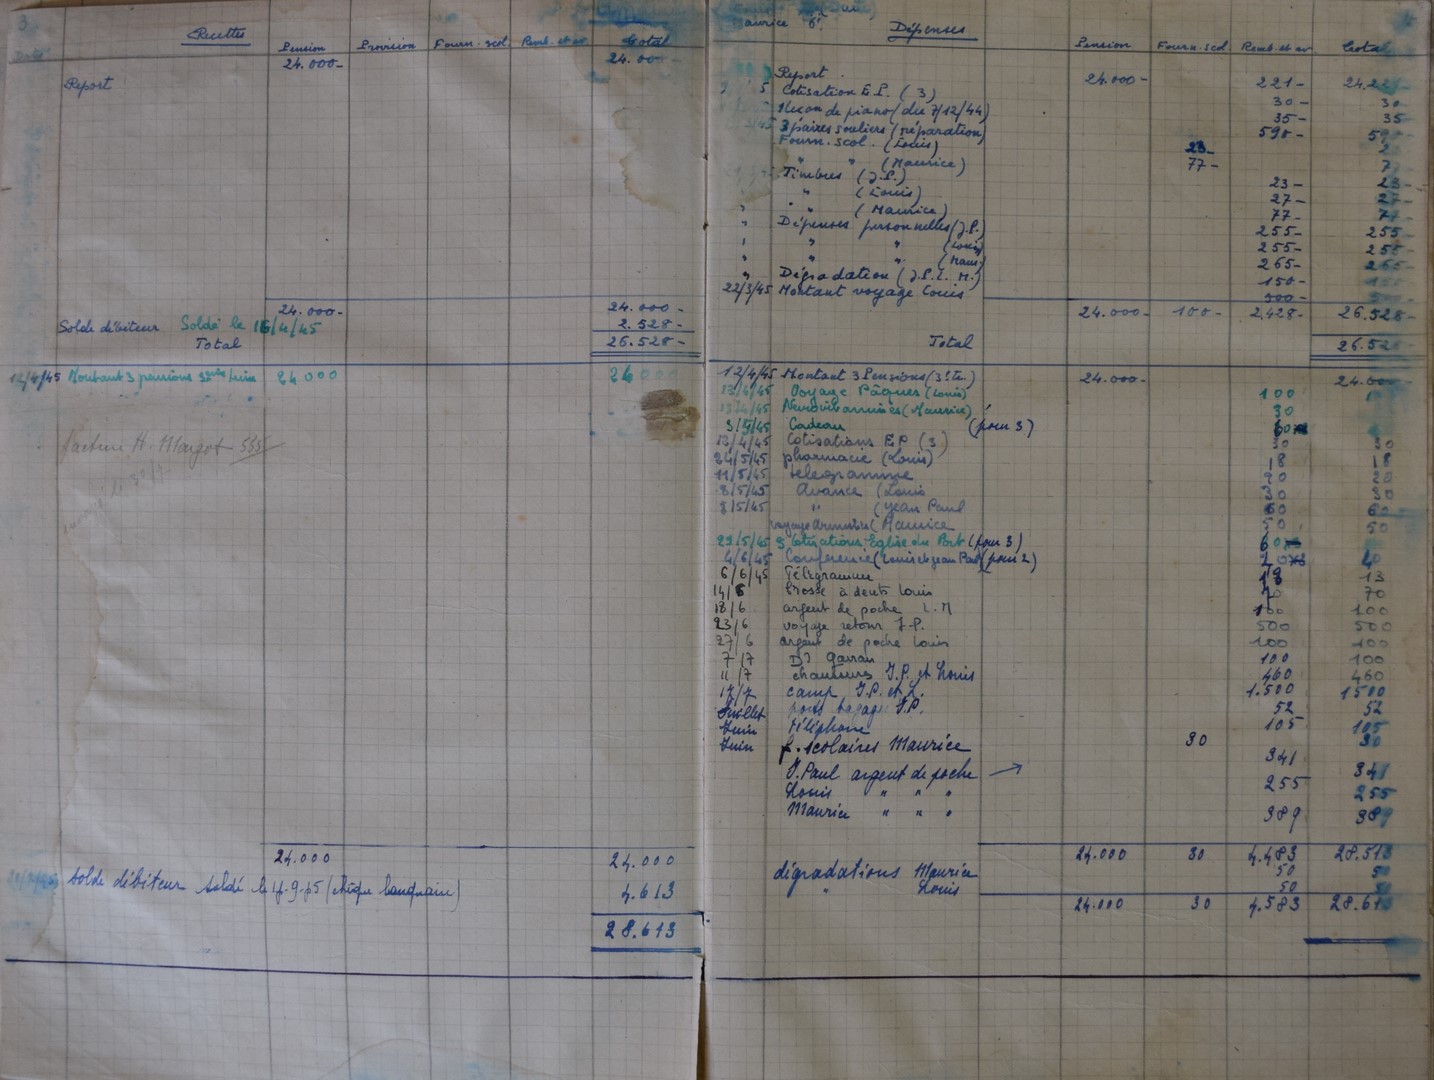 3
Recettes
Pension Provision Fourn. scol. Remb. et av. Total
24.000- 24.00
Report
24.000- 24.000-
Solde débiteur Soldé le 16/4/45 2.528-
Total 26.528-
12/4/45 Montant 3 pensions 24000 24000
facture H. Margot 585
24.000 24.000
Solde débiteur soldé le 14-9-45 (chèque bancaire) 4.613
28.613
Maurice 6e
Dépenses
Pension Fourn. scol. Remb. et av. Total
Report. 24.000- 221- 24.221
5 Cotisation E.P. (3) 30- 30
1 leçon de piano (du 7/12/44) 35- 35
3 paires souliers (réparation) 590-
Fourn. scol. (Louis) 23-
" " (Maurice) 77-
Timbres (J.P.) 23- 23-
" (Louis) 27- 27-
" (Maurice) 77- 77-
" Dépenses personnelles (J.P.) 255- 255-
" " " (Louis) 255- 255
" " " (Maur.) 265- 265-
" Dégradation (J.P. L. M.) 150-
22/3/45 Montant voyage Louis 500-
24.000- 100- 2.428- 26.528-
Total 26.528
12/4/45 Montant 3 Pensions (3e tr.) 24.000- 24.000
13/4/45 Voyage Pâques (Louis) 100
(Maurice) 30
3/5/45 Cadeau (pour 3)
12/4/45 Cotisations E.P. (3) 30 30
24/5/45 pharmacie (Louis) 18 18
11/5/45 télégramme 20 20
8/5/45 Avance (Louis 30 30
8/5/45 " (Jean Paul 60 60
voyage (Maurice 50 50
29/5/45 3 Cotisations Eglise du Port (pour 3)
4/6/45 Conférence (Louis et Jean Paul) (pour 2)
6/6/45 Télégramme 13 13
14/6 brosse à dents Louis 70 70
18/6 argent de poche L. M 100 100
23/6 voyage retour J-P. 500 500
27/6 argent de poche Louis 100 100
7/7 Dr Garrau 100 100
11/7 chaussures J.P. et Louis 460 460
17/7 camp J.P. et L. 1.500 1500
Juillet port bagages J.P. 52 52
Juin téléphone 105 105
Juin f. scolaires Maurice 30 30
J. Paul argent de poche → 341 341
Louis " " " 255 255
Maurice " " " 389 389
24.000 30 4.483 28.513
dégradations Maurice 50 50
" Louis 50 50
24.000 30 4.583 28.613